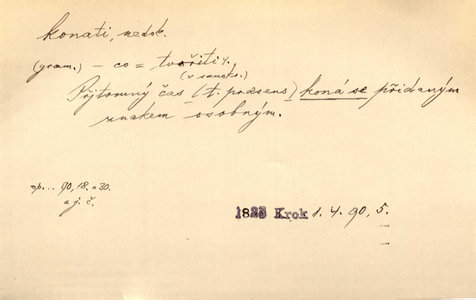 konati, nedok.
(gram.) – co = tvořiti
(v sanskr.)
Přítomný čas (t. praesens) koná se přidaným
znakem osobným.
90, 18. a 30.
a j. č.
1823 Krok 1. 4. 90, 5.